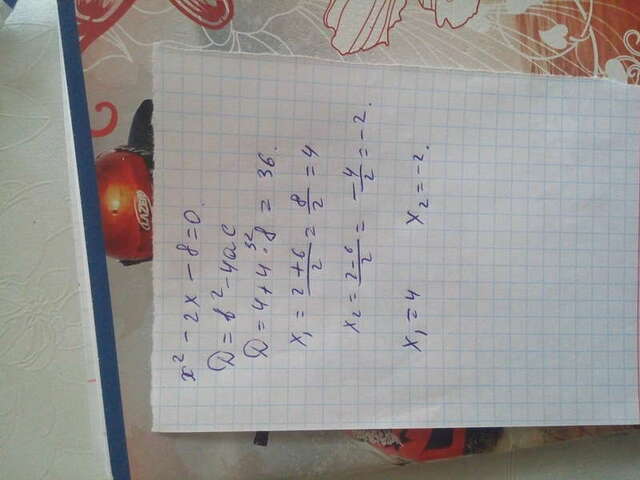 x² - 2x - 8 = 0.
D = b² - 4ac
D = 4 + 4 · 8 = 36.
32
x₁ = (2 + 6)/2 = 8/2 = 4
x₂ = (2 - 6)/2 = -4/2 = -2.
x₁ = 4 x₂ = -2.